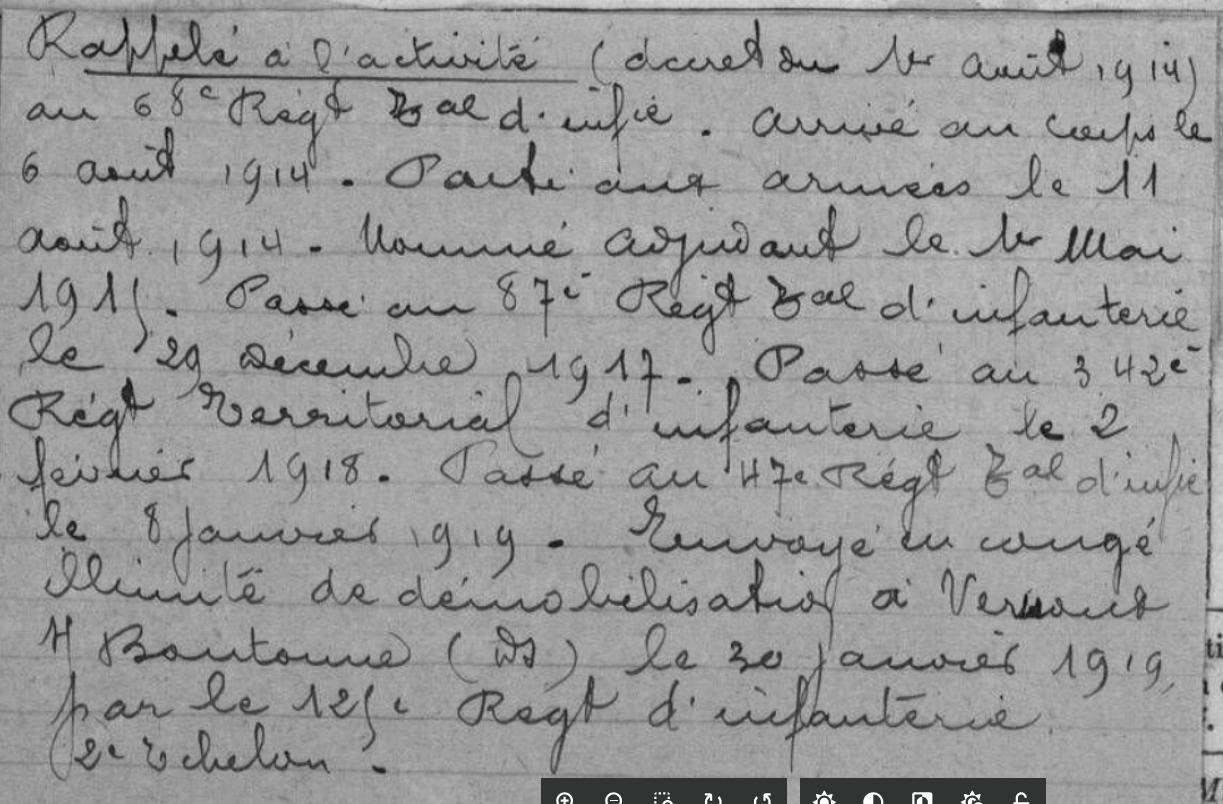 Rappelé à l'activité (décret du 1er août 1914)
au 68e Régt Tal d'infie. Arrivé au corps le
6 août 1914. Parti aux armées le 11
août 1914. Nommé adjudant le 1er Mai
1915. Passé au 87e Régt Tal d'infanterie
le 29 Décembre 1917. Passé au 342e
Régt Territorial d'infanterie le 2
février 1918. Passé au 47e Régt Tal d'infie
le 8 Janvier 1919. Envoyé en congé
illimité de démobilisation à
Boutonne (DS) le 30 janvier 1919,
par le 125e Régt d'infanterie
2e Echelon.